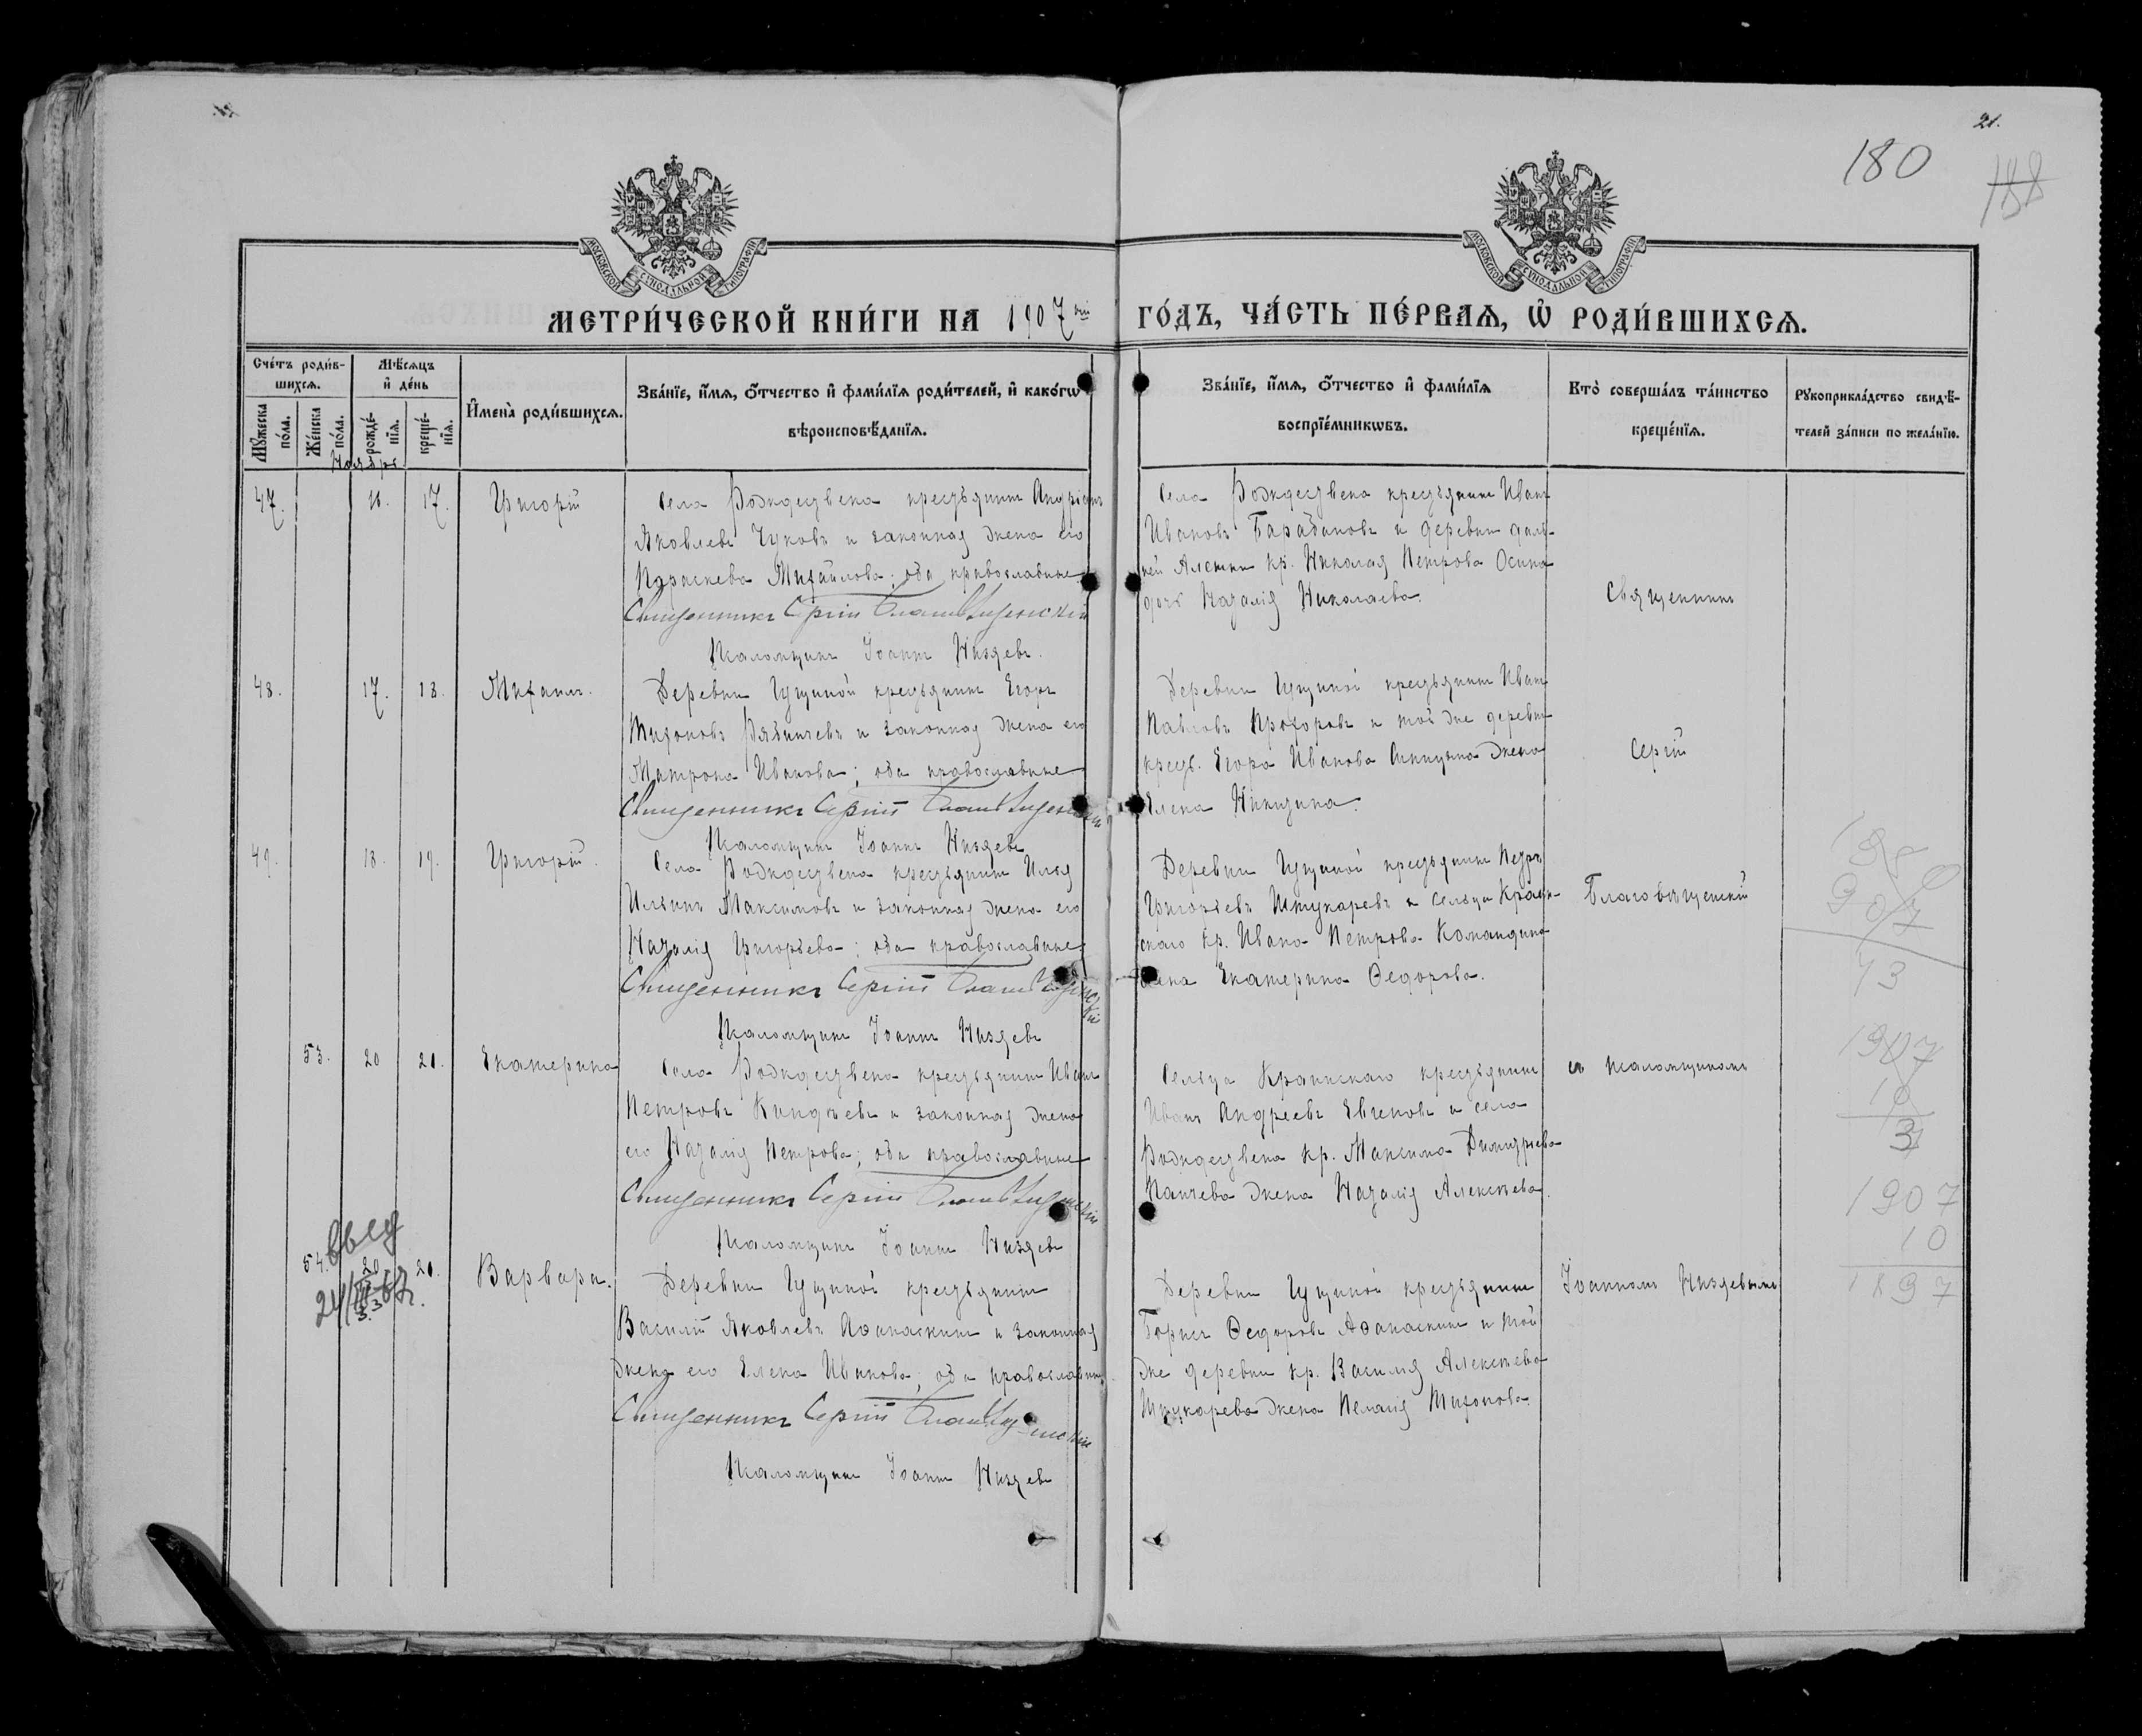 21.
180
188
МОСКОВСКОЙ СУНОДАЛЬНОЙ ТИПОГРАФІИ
МОСКОВСКОЙ СУНОДАЛЬНОЙ ТИПОГРАФІИ
МЕТРИ́ЧЕСКОЙ КНИ́ГИ НА 1907 ГО́ДЪ, ЧА́СТЬ ПЕ́РВАѦ, Ѽ РОДИ́ВШИХСѦ.
Сче́тъ роди́в-
шихсѧ.
Мꙋ́жеска по́ла.
Же́нска по́ла.
Мѣ́сѧцъ
и҆ де́нь
рожде́-
нїѧ.
креще́-
нїѧ.
И҆мена̀ роди́вшихсѧ.
Зва́нїе, и҆́мѧ, ѻ҆́тчество и҆ фами́лїѧ роди́телей, и҆ како́гѡ
вѣроисповѣ́данїѧ.
Зва́нїе, и҆́мѧ, ѻ҆́тчество и҆ фами́лїѧ
воспрїе́мникѡвъ.
Кто̀ соверша́лъ та́инство
креще́нїѧ.
Рꙋкоприкла́дство свидѣ́-
телей за́писи по жела́нїю.
Ноябрь
47. 16. 17. Григорій
Села Рождествена крестьянинъ Андріанъ
Яковлевъ Чуковъ и законная жена его
Параскева Михайлова; оба православные
Священникъ Сергій Благовѣщенскій
Псаломщикъ Іоаннъ Низяевъ.
Села Рождествена крестьянинъ Иванъ
Ивановъ Барабановъ и деревни даль-
ней кр. Николая Петрова Осина
дочь Наталія Николаева.
Священникъ
48. 17. 18. Михаилъ.
Деревни Гущиной крестьянинъ Егоръ
Тихоновъ Рябинчевъ и законная жена его
Матрона Иванова; оба православные
Священникъ Сергій Благовѣщенскій
Псаломщикъ Іоаннъ Низяевъ
Деревни Гущиной крестьянинъ Иванъ
Павловъ Прохоровъ и той же деревни
крест. Егора Иванова жена
Елена Никитина.
Сергій
49. 18. 19. Григорій.
Села Рождествена крестьянинъ Илья
Ильинъ Максимовъ и законная жена его
Наталія Григорьева; оба православные
Священникъ Сергій Благовѣщенскій
Псаломщикъ Іоаннъ Низяевъ
Деревни Гущиной крестьянинъ Петръ
Григорьевъ Штукаревъ и сельца Краин-
скаго кр. Ивана Петрова Командина
жена Екатерина Ѳедорова.
Благовѣщенскій
53. 20 21. Екатерина
Села Рождествена крестьянинъ Иванъ
Петровъ Киндѣевъ и законная жена
его Наталія Петрова; оба православные
Священникъ Сергій Благовѣщенскій
Псаломщикъ Іоаннъ Низяевъ
Сельца Краинскаго крестьянинъ
Иванъ Андреевъ Евченовъ и села
Рождествена кр. Максима Димитріева
Папчева жена Наталія Алексѣева.
съ псаломщикомъ
54. 20 20. Варвара.
Деревни Гущиной крестьянинъ
Василій Яковлевъ Аѳанаскинъ и законная
жена его Елена Иванова; оба православные.
Священникъ Сергій Благовѣщенскій
Псаломщикъ Іоаннъ Низяевъ
Деревни Гущиной крестьянинъ
Борисъ Ѳедоровъ Аѳанаскинъ и той
же деревни кр. Василія Алексѣева
Штукарева жена Пелагія Тихонова.
Іоанномъ Низяевымъ
907
1907
10
1907
10
1897